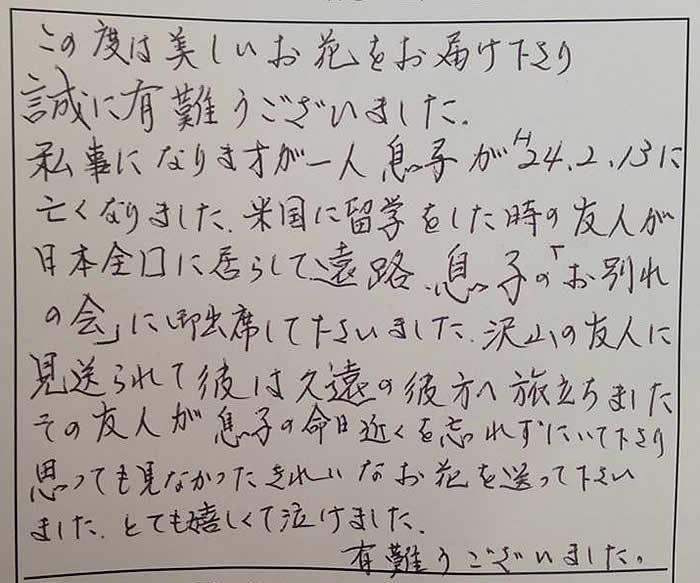 この度は美しいお花をお届け下さり
誠に有難うございました.
私事になりますが一人息子がH24.2.13に
亡くなりました.米国に留学をした時の友人が
日本全口に居らして遠路、息子の「お別れ
の会」に御出席して下さいました.沢山の友人に
見送られて彼は久遠の彼方へ旅立ちました
その友人が息子の命日近くを忘れずにいて下さり
思っても見なかったきれいなお花を送って下さい
ました.とても嬉しくて泣けました.
有難うございました。